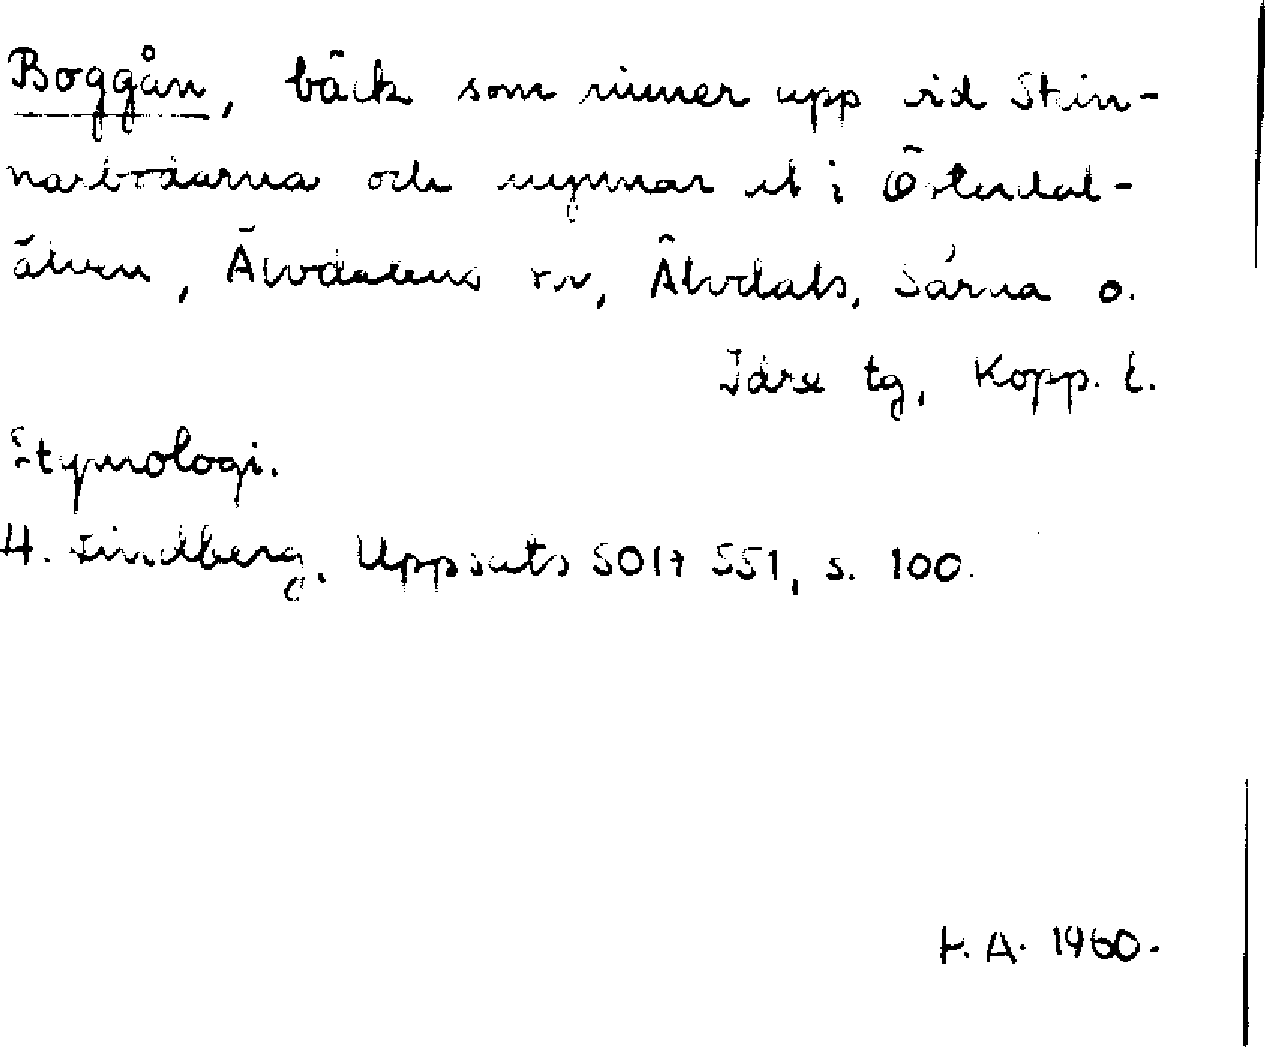 Boggån, bäck som rinner upp vid Skin-
narbodarna och mynnar ut i Österdal-
älven, Älvdalens sn, Älvdals, Särna o.
Idre tg, Kopp. l.
Etymologi.
H. Lindberg, Uppsats SOIA 551, s. 100.
H. A. 1960.